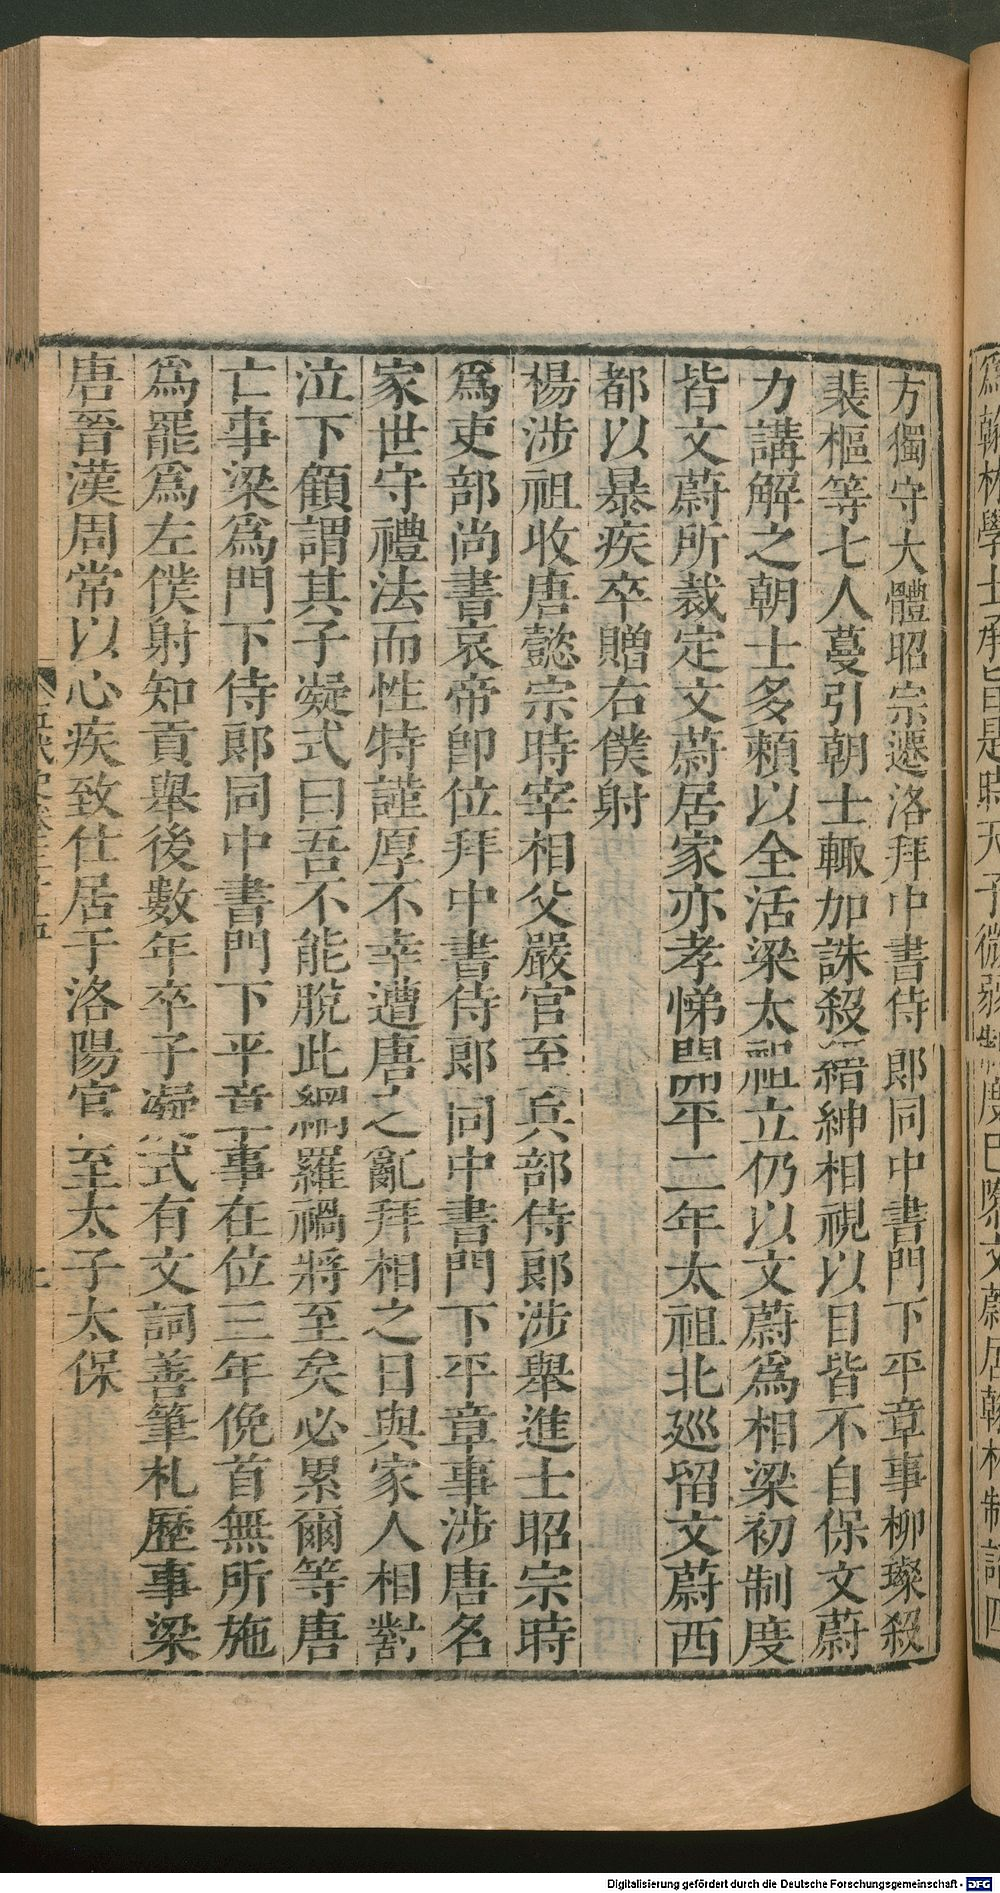 爲翰林學士承旨是時天子微弱制度已隳文蔚居翰林制詔四
方獨守大體昭宗遷洛拜中書侍郎同中書門下平章事柳璨殺
裴樞等七人蔓引朝士輒加誅殺縉紳相視以目皆不自保文蔚
力講解之朝士多頼以全活梁太祖立仍以文蔚爲相梁初制度
皆文蔚所裁定文蔚居家亦孝悌開平二年太祖北廵留文蔚西
都以暴疾卒贈右僕射
楊涉祖收唐懿宗時宰相父嚴官至兵部侍郎涉舉進士昭宗時
爲吏部尚書哀帝卽位拜中書侍郎同中書門下平章事涉唐名
家世守禮法而性特謹厚不幸遭唐之亂拜相之日與家人相對
泣下顧謂其子凝式曰吾不能脫此網羅禍將至矣必累爾等唐
亡事梁爲門下侍郎同中書門下平章事在位三年俛首無所施
爲罷爲左僕射知貢舉後數年卒子凝式有文詞善筆札歷事梁
唐晉漢周常以心疾致仕居于洛陽官至太子太保
五代史卷三十五
Digitalisierung gefördert durch die Deutsche Forschungsgemeinschaft - DFG